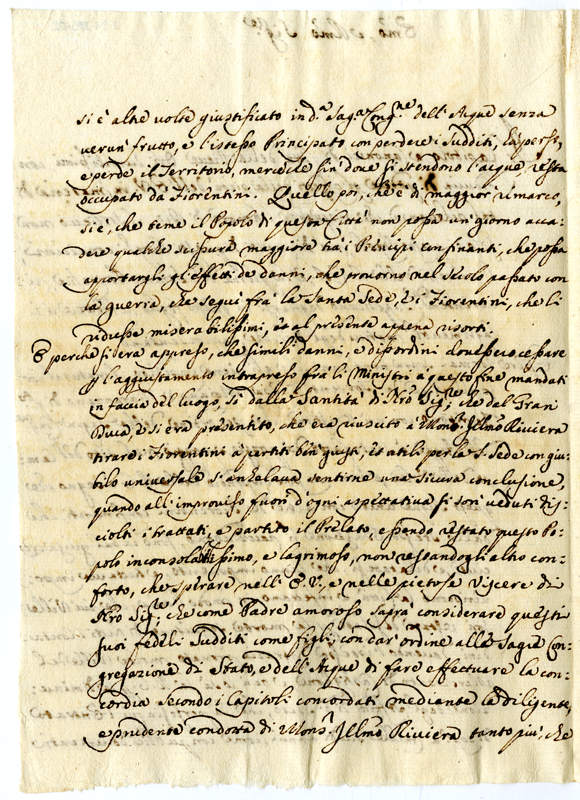 si è altre volte giustificato in d.ª Sag.ª Cong.ne dell'Acque senza
verun frutto, e l'istesso Principato con perdere i sudditi, hà perso,
e perde il Territorio, mercecche fin dove si stendono l'acque resta
occupato da Fiorentini. Quello poi, che è di maggior rimarco,
si è, che teme il Popolo di questa Città non possa un giorno acca-
dere qualche scissura maggiore trà i Principi confinanti, che possa
apportargli gl'effetti de danni, che provorno nel secolo passato con
la guerra, che seguì frà la Santa Sede, et i Fiorentini, che li
ridusse miserabilissimi, et al presente appena risorti.
E perche si era appreso, che simili danni, e dissordini dovessero cessare
p l'aggiustamento intrapreso frà li Ministri à questo fine mandati
in faccia del luogo, sì dalla Santità di Nrõ Sig.re, che dal Gran
Duca, e si era presentito, che era riuscito à Mons.r Illmõ Riviera
tirare i Fiorentini à partiti ben giusti, et utili per la S. Sede con giu-
bilo universale s'anzelava sentirne una sicura conclusione,
quando all'improviso fuori d'ogni aspettativa si son veduti dis-
ciolti i trattati, e partito il Prelato, essendo restato questo Po-
polo inconsolatissimo, e lagrimoso, non restandogli altro con-
forto, che sperare nell'E.V., e nelle pietose viscere di
Nrõ Sig.re, che come Padre amoroso saprà considerare questi
suoi fedeli sudditi come figli, con dar'ordine alla Sagrã Con-
gregazione di Stato, e dell'Acque di fare effectuare la con-
cordia secondo i Capitoli concordati mediante la diligente,
e prudente condotta di Mons.r Illmõ Riviera tanto più, che